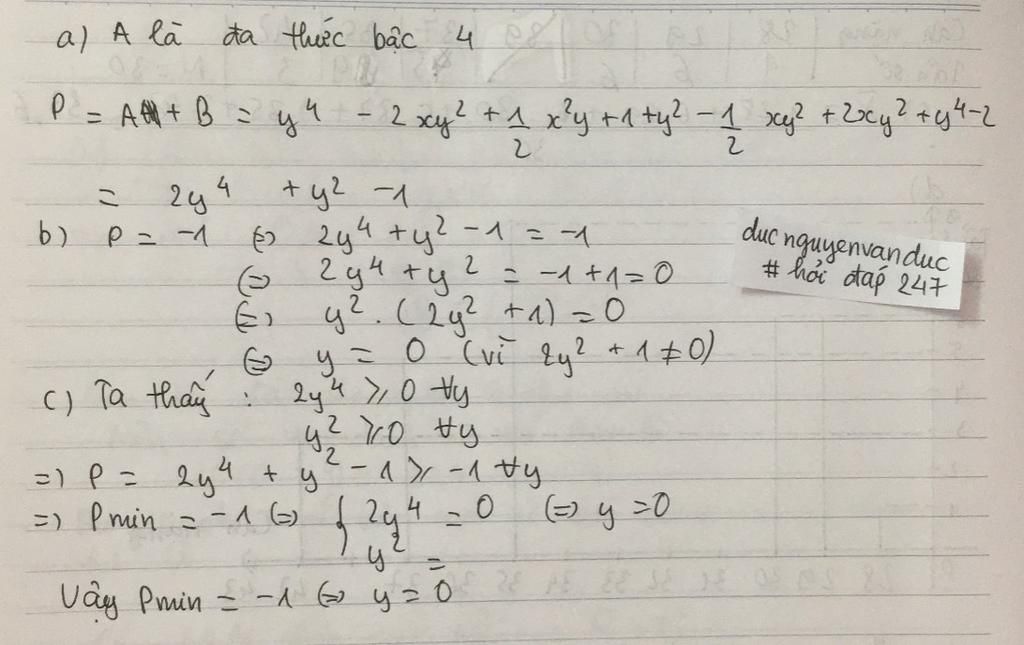 a) A là đa thức bậc 4
P = A + B = y⁴ - 2xy² + 1/2 x²y + 1 + y² - 1/2 xy² + 2xy² + y⁴ - 2
= 2y⁴ + y² - 1
b) P = -1 ⇔ 2y⁴ + y² - 1 = -1
⇔ 2y⁴ + y² = -1 + 1 = 0
⇔ y² . (2y² + 1) = 0
⇔ y = 0 (vì 2y² + 1 ≠ 0)
ducnguyenvanduc
# hỏi đáp 247
c) Ta thấy : 2y⁴ ≥ 0 ∀y
y² ≥ 0 ∀y
=) P = 2y⁴ + y² - 1 ≥ -1 ∀y
=) Pmin = -1 ⇔ { 2y⁴ = 0 ⇔ y = 0
y² =
Vậy Pmin = -1 ⇔ y = 0